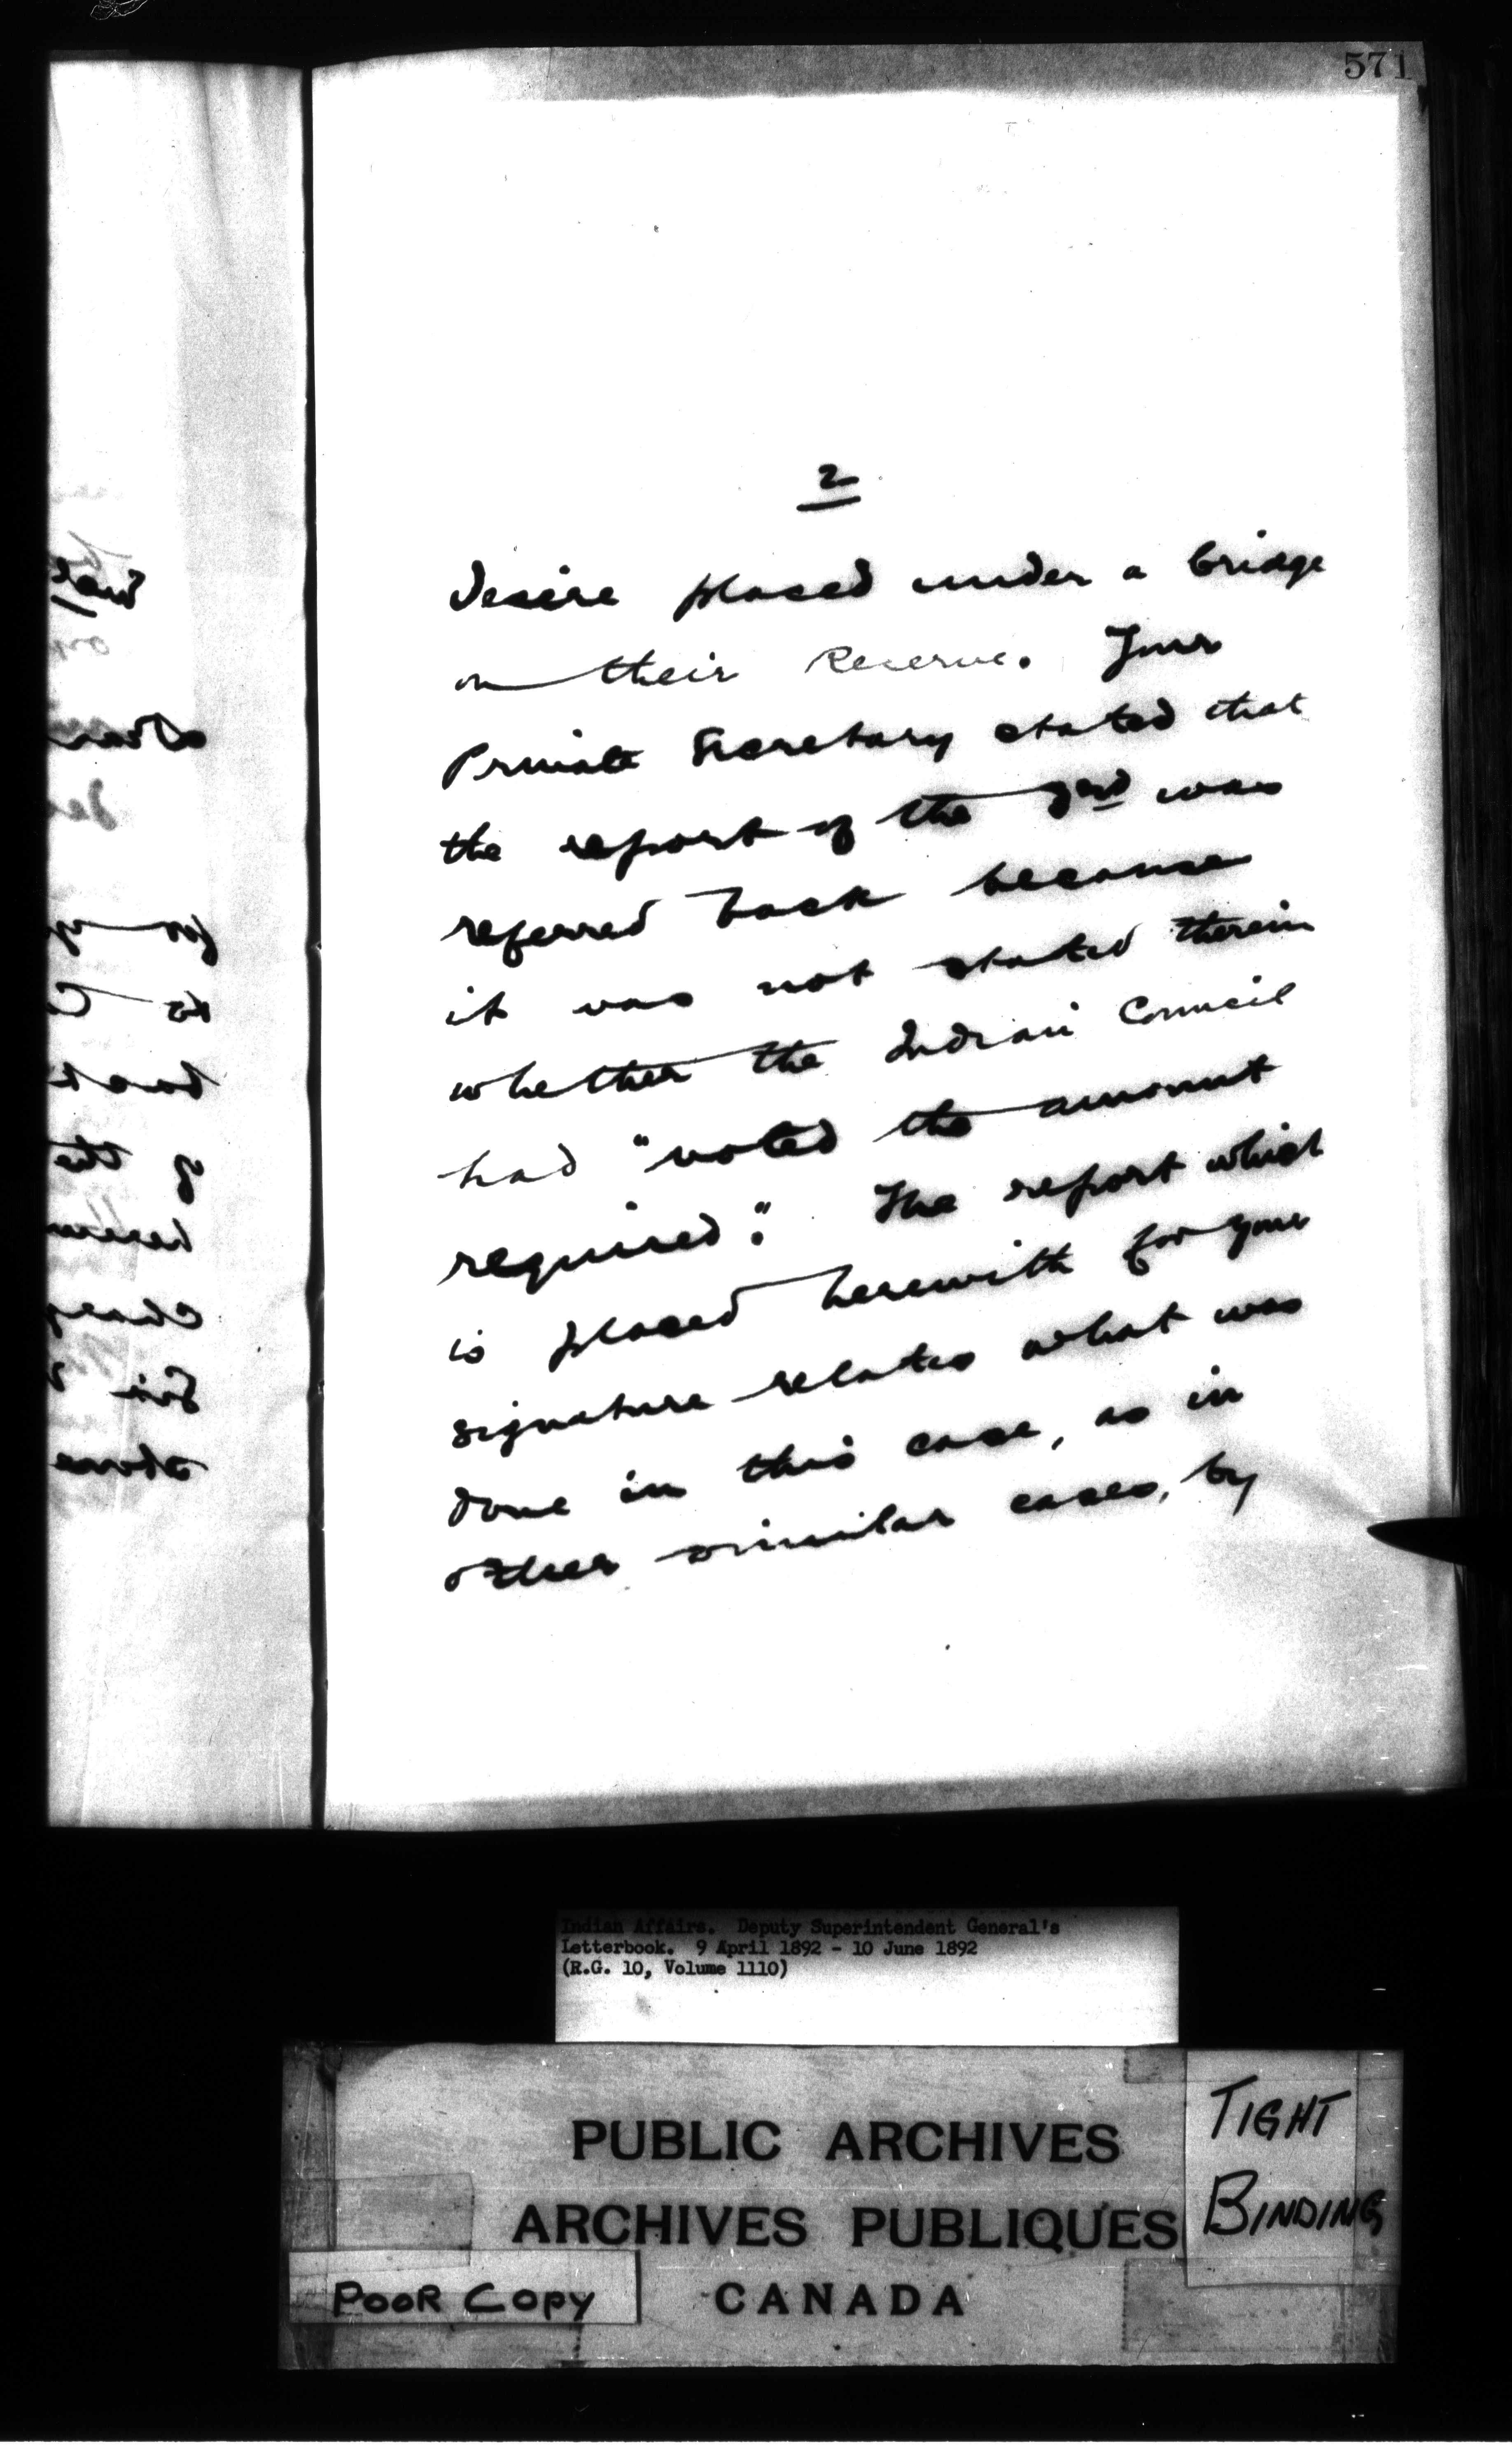 571
2
desire placed under a bridge
on their Reserve. Your
Private Secretary stated that
the report of the 3rd was
referred back because
it was not stated therein
whether the Indian Council
had "voted the amount
required". The report which
is placed herewith for your
signature relates what was
done in this case, as in
other similar cases, by
Indian Affairs. Deputy Superintendent General's
Letterbook. 9 April 1892 - 10 June 1892
(R.G. 10, Volume 1110)
PUBLIC ARCHIVES
ARCHIVES PUBLIQUES
CANADA
TIGHT
BINDING
POOR COPY